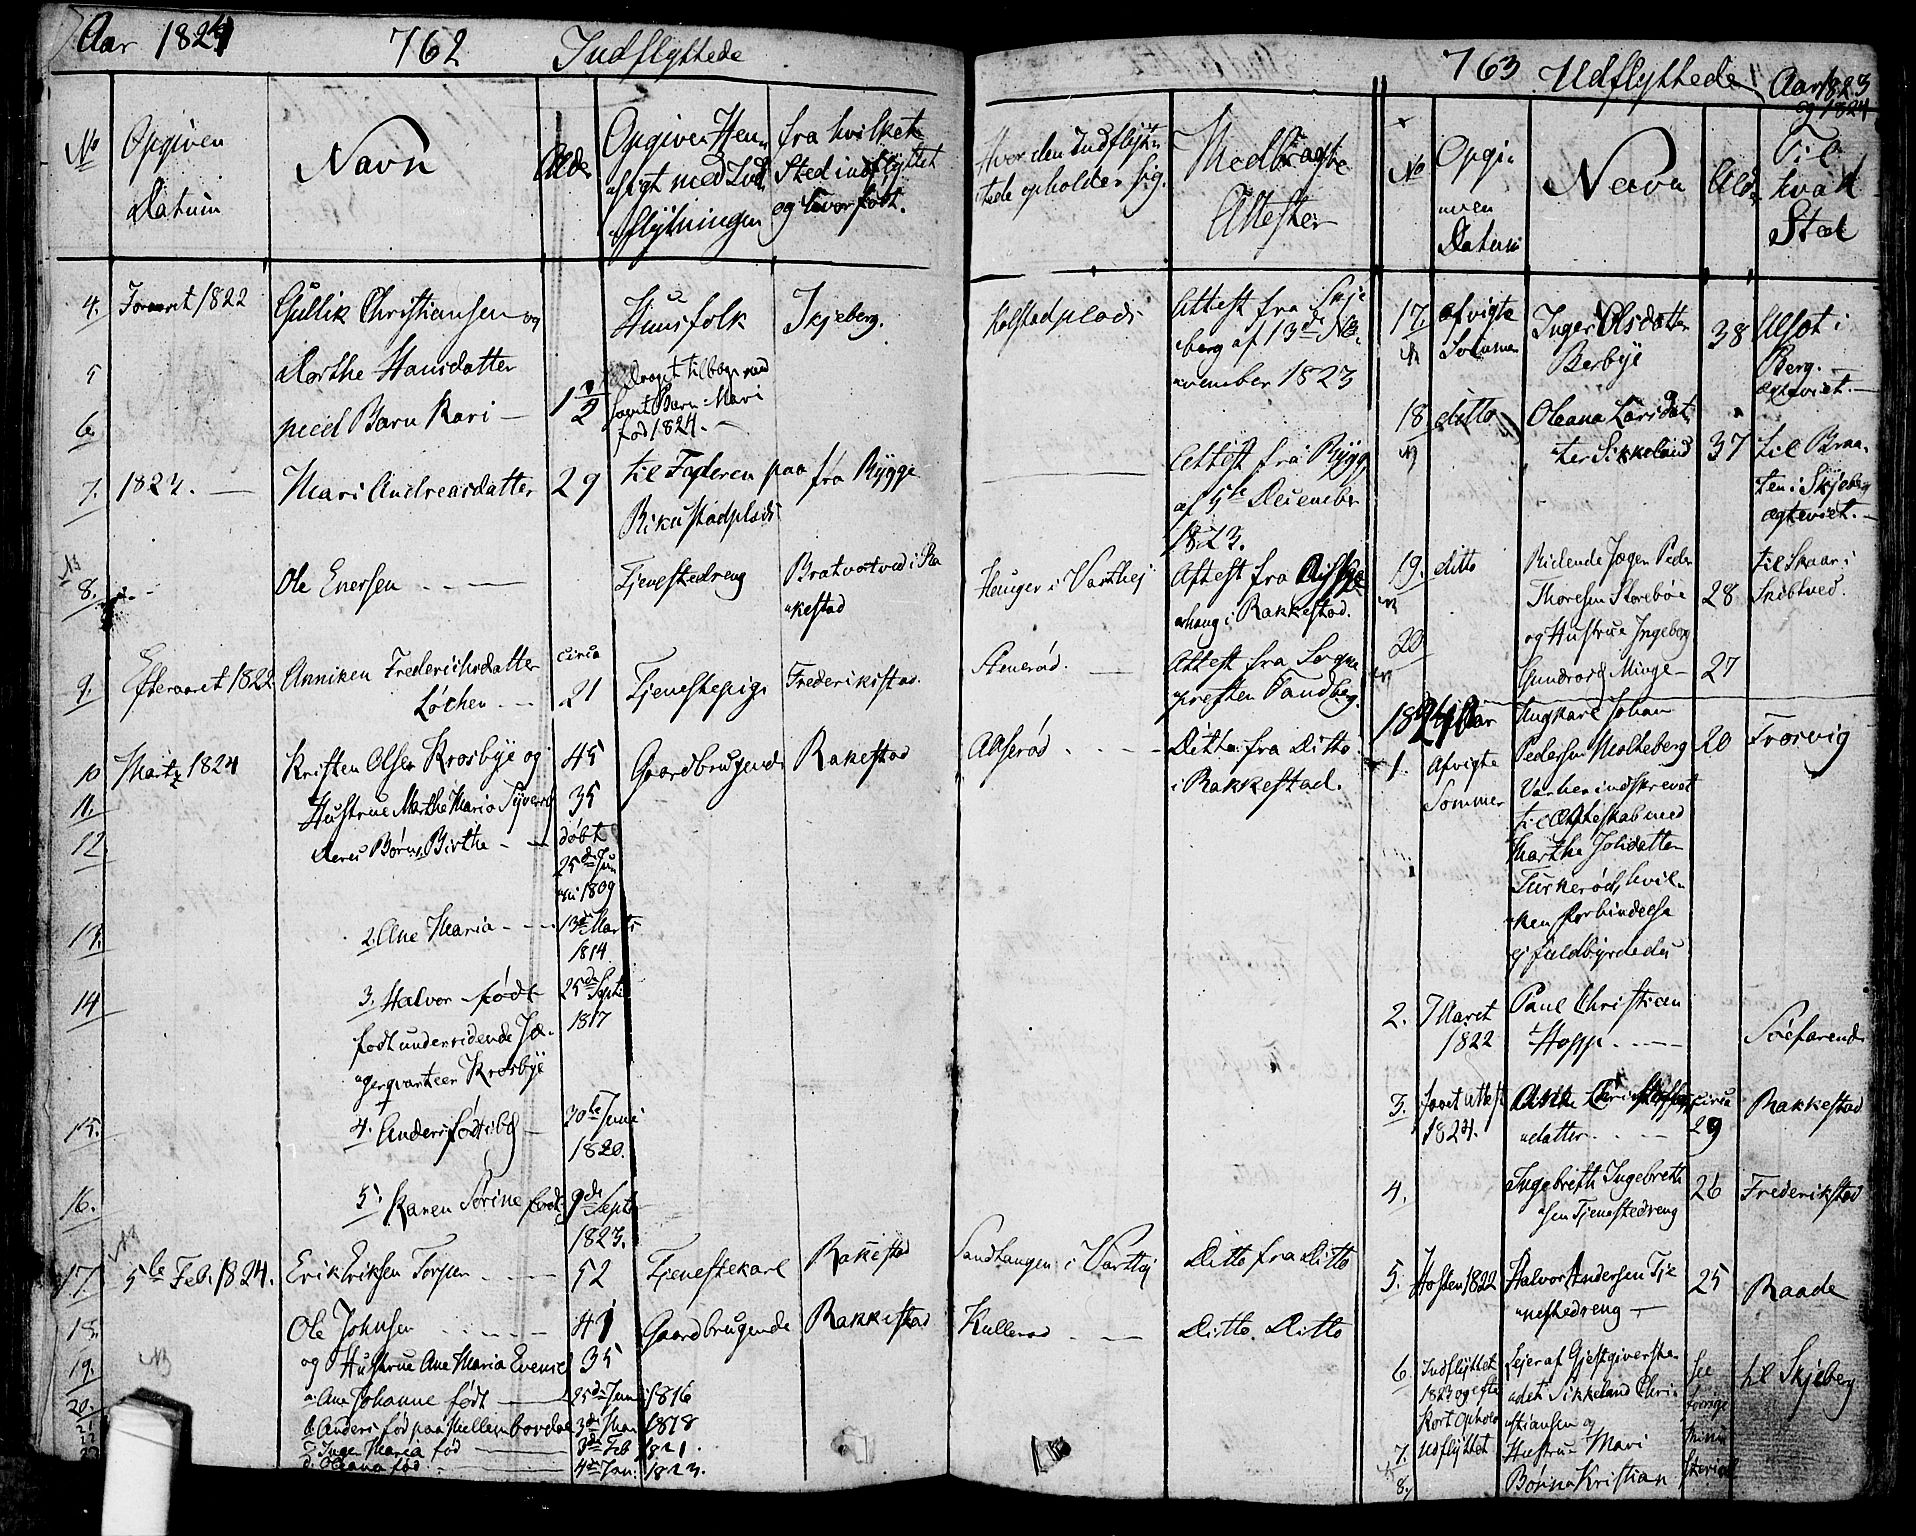 Aar 1824 762 Indflyttede
No
Opgiven
Datum
Navn
Alder
Opgiven Hen-
sigt med Ind-
flytningen
fra hvilket
Sted indflyttet
og hvor født.
Hvor den Indflyt-
tede opholder sig.
Medbragte
Attester
4. Foraaret 1822 Gullik Christiansen og Huusfolk Skjeberg. Attest fra Skje
berg af 13de No-
vember 1823
5 Dorthe Hansdatter
6. med Barn Kari — 1 1/2
draget tilbage med
samt Barn Mari
fød 1824. —
7. 1823. — Mari Andreasdatter 29 til Faderen paa fra Rygge
Rikustadplads
Attest fra Rygge
af 5te December
1823.
NB
8. Ole Enersen — — Tjenestedreng
Rakkestad
Henger i Varthej Attest fra
i Rakkestad.
9. Efteraaret 1822 Anniken Frederichsdatter
Løchen — —
circa
21 Tjenestepige Frederikstad
Stenerød. — Attest fra Sogne
præsten Sandberg.
10 Martz 1824 Kristen Olsen Krosbye og 45 Gaardbrugende Rakestad
Ditto fra Ditto
i Rakkestad.
11. Hustrue Marthe Maria Syversd 35
12 Deres Børn Birthe — — døbt
25de Jun
1809
13. 2. Ane Maria — — 13de Marts
1814
14 3. Halvor — født 25de Septb
1817
født under ridende Jæ-
gerqvarteer Krosbye
15. 4. Anders født ibd — 30te Juni
1820.
16. 5. Karen Sørine født 9de Septb
1823.
NB
17. 5te Feb. 1824. Erik Eriksen Torper — — 52 Tjenestekarl Rakkestad
Sandtangen i Varthej Ditto fra Ditto
18. Ole Johnsen — — 41 Gaardbrugende Rakkestad Kullerød — — Ditto. Ditto
NB
19. og Hustrue Ane Maria Evensd 35
20. a. Ane Johanne født — 25de Jun 1816
b Anders fød paa Mellembordal 3de Mar 1818
Inger Maria fød — 3de Feb 1821.
d. Oleana fød — 4de Jan. 1823.
763 Udflyttede Aar 1823
og 1824
No
Opgi-
ven
Datum
Navn
Alder
Til
hvad
Sted
17. afvigte
Sommer
Inger Olsdatter
Berbye
38 Ulsøt i
Berg.
ægteviet. —
18 ditto Oleana Larsdat-
ter Sikkeland
37 til Braa-
ten i Skjeberg
ægteviet. —
19. ditto Ridende Jæger Peder
Thoresen Storebøe 28 til Skaar i
Skibtved.
20 og Hustrue Ingeborg
Gundrosd Minge — 27
1824 Aar
1. Afvigte
Sommer
Ungkarl Johan
Pedersen Molteberg 20 Frorvig
Var her indskrevet
til Ægteskab med
Marthe Johsdatter
Turkerød, hvil-
ken Forbindelse
ej fuldbyrdedes
2. 7 Maret
1822
Paul Christian
Hopp — —
Søefarende
3.
1824.
Ane
datter. —
circa
29
Rakkestad
4. Ingebreth Ingebreth-
sen Tjenestedreng
26 Frederikstad
5. Høsten 1822 Halvor Andersen Tje-
nestedreng —
25 Raade
6. Indflyttet
1823 og efter
kort Ophold
udflyttet
Lejer af Gjestgiverste-
det Sikkeland Chri-
stiansen og
7. Hustrue Mari
8. Børne Kristian
til Skjeberg